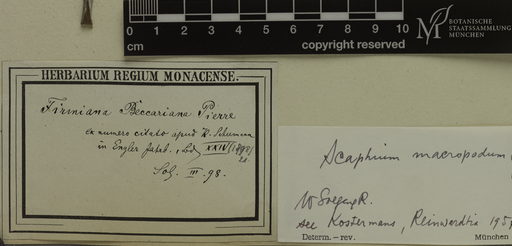 0 1 2 3 4 5 6 7 8 9 10
cm
copyright reserved
BOTANISCHE
STAATSSAMMLUNG
MÜNCHEN
HERBARIUM REGIUM MONACENSE.
Firmiana Beccariana Pierre
ex numero citato apud K. Schumann
in Engler Jahrb. XXIV
Sol. III. 98.
Scaphium macropodum
see Kostermans, Reinwardtia 195
Determ. – rev. München